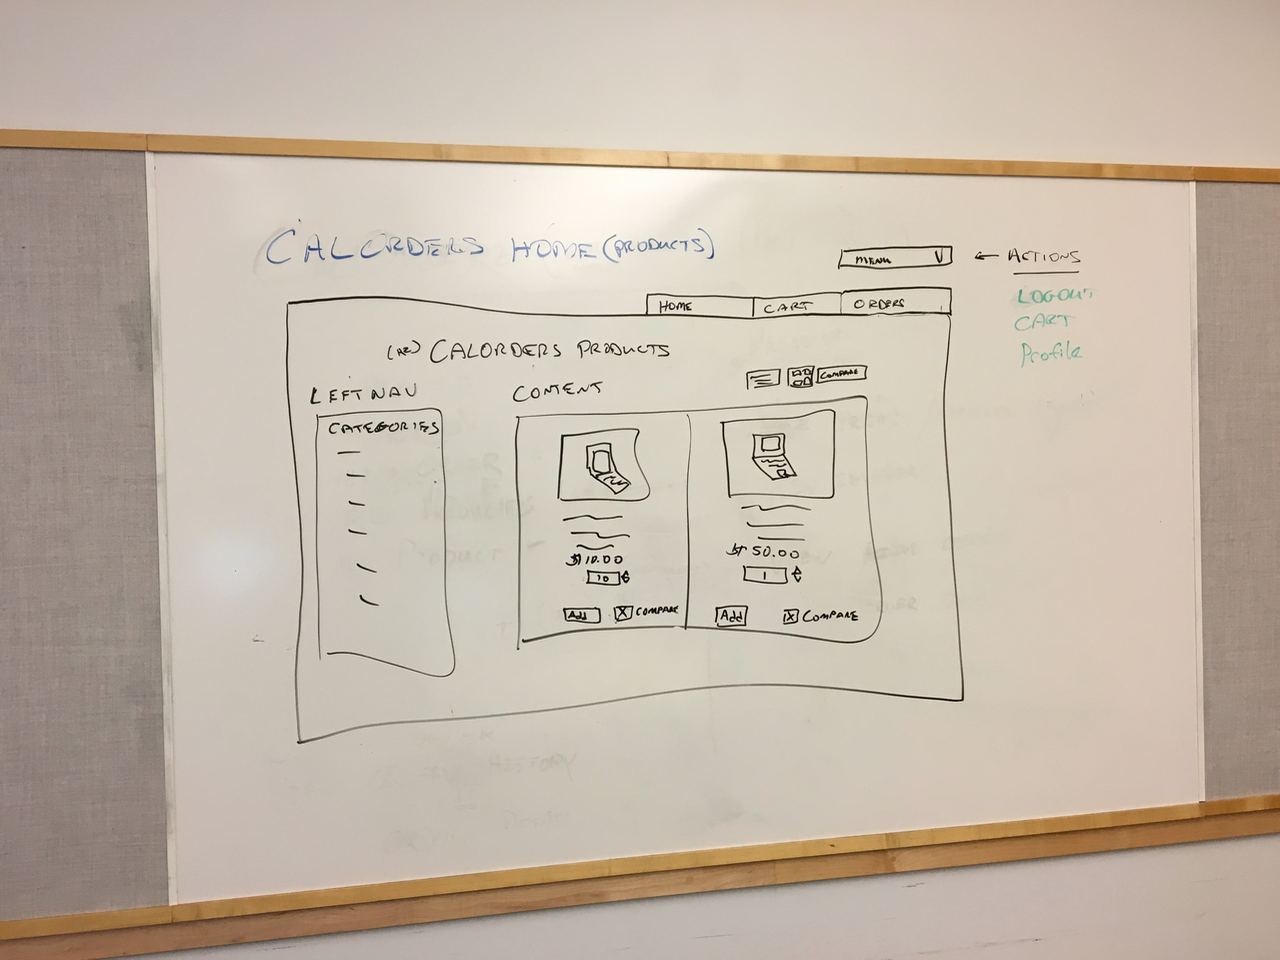 CALORDERS HOME (PRODUCTS)
MENU V
← ACTIONS
LOGOUT
CART
Profile
HOME
CART
ORDERS
CALORDERS PRODUCTS
LEFT NAV
CONTENT
COMPARE
CATEGORIES
$10.00
10
Add
X COMPARE
$50.00
1
Add
X COMPARE
HISTORY